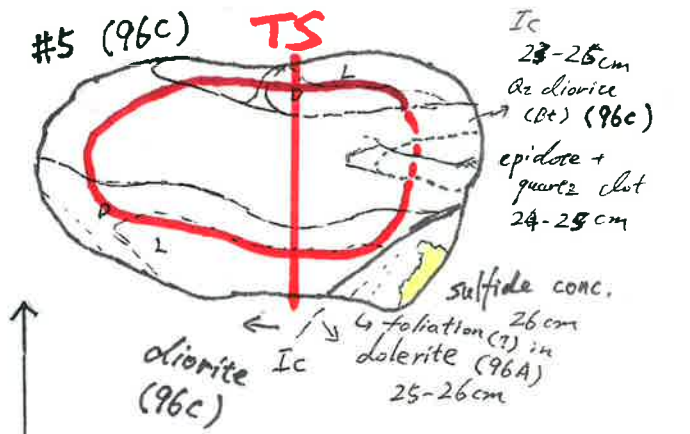 #5 (96C)
TS
Ic
25-26cm
Qz diorite
(Bt) (96C)
epidote +
quartz clot
24-25cm
D
L
D
L
sulfide conc.
26cm
↳ foliation(?) in
dolerite (96A)
25-26cm
Ic
diorite
(96C)